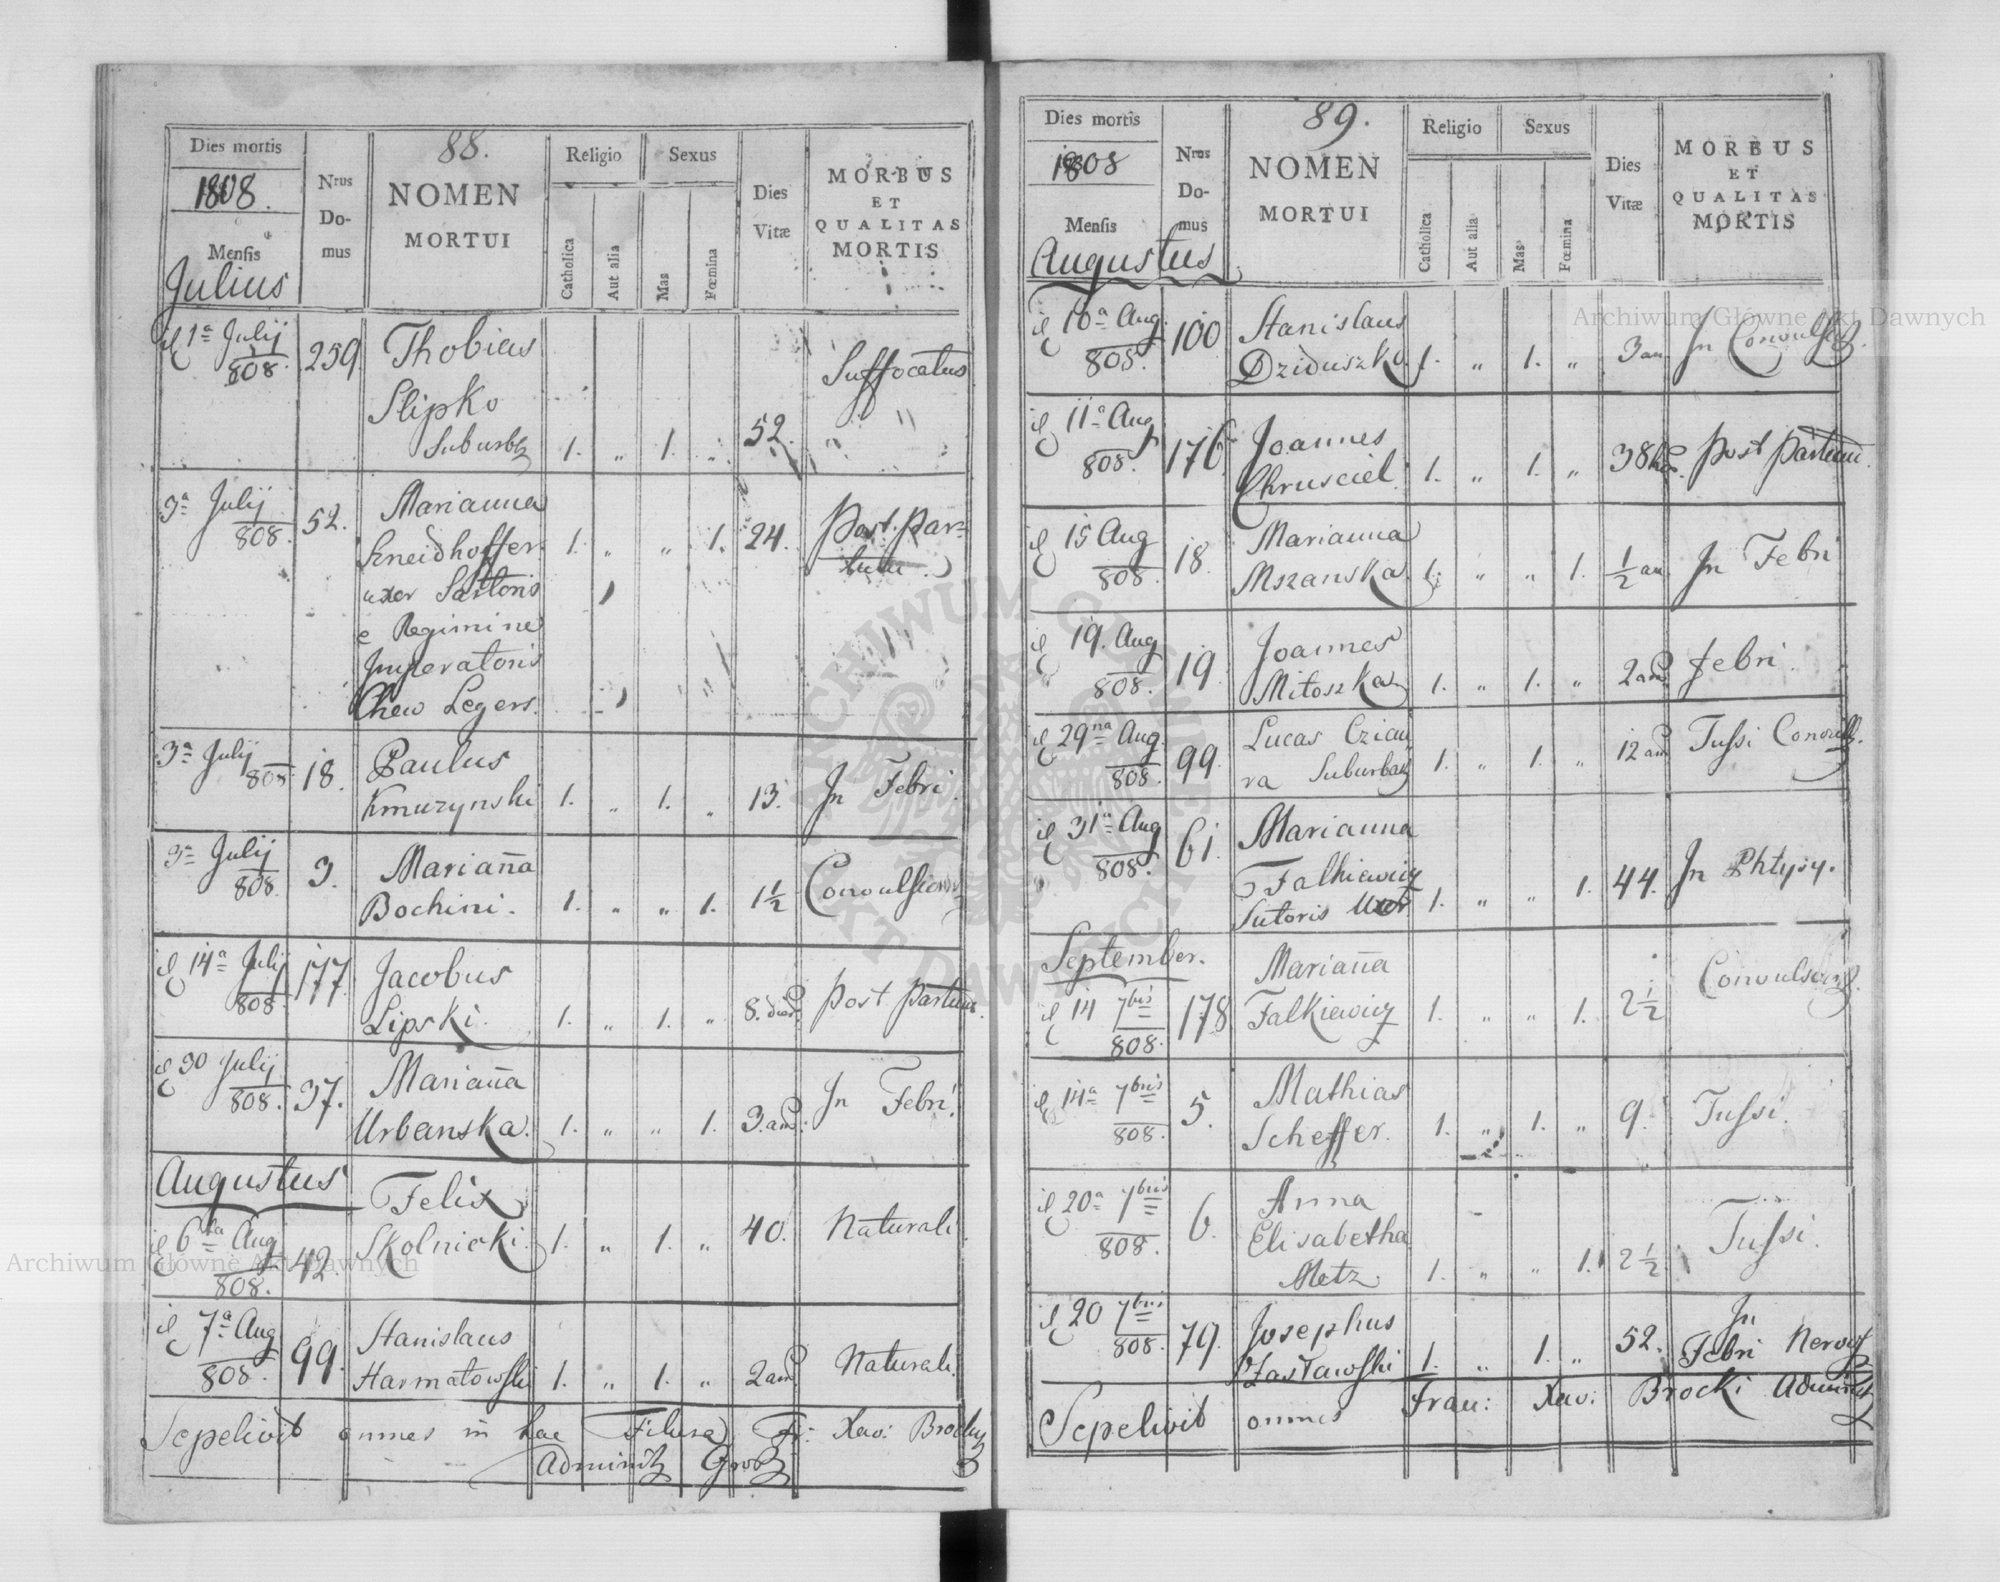 88.
Dies mortis
1808.
Mensis
Julius
Nrus Do- mus
NOMEN
MORTUI
Religio
Catholica
Aut alia
Sexus
Mas
Fœmina
Dies Vitæ
MORBUS
ET
QUALITAS
MORTIS
1a Julij 808. 259 Thobias Slipko 1. „ 1. „ 52. Suffocatus
3a Julij 808. 52. Marianna
uxor Sartoris
e Regimine
Imperatoris
Legers. 1. „ „ 1. 24. Post Par=
tum
3a Julij 808 18. Paulus
Kmurzynski 1. „ 1. „ 13. In Febri.
3a Julij 808. 3. Mariana
Bochini. 1. „ „ 1. 1½
14a Julij 808. 177 Jacobus
Lipski. 1. „ 1. „ 8. Post Partum.
30 Julij 808. 37. Mariana
Urbanska. 1. „ „ 1. 3. In Febri.
Augustus
6ta Aug 808. 42. Felix
Skolnicki. 1. „ 1. „ 40. Naturali.
7a Aug 808. 99. Stanislaus
Harmatowski 1. „ 1. „ 2 Naturali.
Sepelivit omnes in hac Fr: Xav: Brocky
89.
Dies mortis
1808
Mensis
Augustus
Nros Do- mus
NOMEN
MORTUI
Religio
Catholica
Aut alia
Sexus
Mas
Fœmina
Dies Vitæ
MORBUS
ET
QUALITAS
MORTIS
10a Aug. 808. 100 Stanislaus
Dziduszko. 1. „ 1. „ 3 an. In
11a Aug 808. 176 Joannes
Chrusciel. 1. „ 1. „ 38 Post Partum.
15 Aug 808. 18. Marianna
Mszanska. 1. „ „ 1. ½ an. In Febri
19. Aug 808. 19. Joannes
Mitoszka 1. „ 1. „ 2 Febri.
29na Aug. 808. 99. Lucas Czicau
ra 1. „ 1. „ 12 Tussi
31a Aug 808. 61. Marianna
Falkiewicz
Sutoris Uxor 1. „ „ 1. 44. In Phtysy.
September.
14 7bris 808. 178 Mariana
Falkiewicz 1. „ „ 1. 2½
14a 7bris 808. 5. Mathias
Scheffer. 1. „ 1. „ 9. Tussi.
20a 7bris 808. 6. Anna
Elisabetha
Metz. 1. „ „ 1. 2½ Tussi.
20 7bris 808. 79. Josephus
Zastawski 1. „ 1. „ 52. In
Febri
Sepelivit omnes Fran: Xav: Brocki
Archiwum Główne Akt Dawnych
Archiwum Główne Akt Dawnych
ARCHIWUM GŁÓWNE AKT DAWNYCH